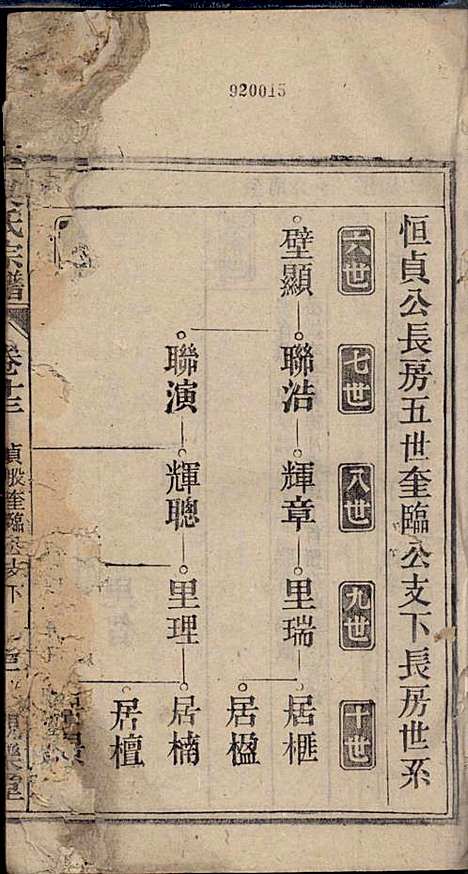 920015
恒貞公長房五世奎臨公支下長房世系
六世
七世
八世
九世
十世
壁顯
聯浩
輝章
里瑞
居榧
居楹
聯演
輝聰
里理
居楠
居檀
氏宗譜
卷十三
貞股奎臨公支下
樂堂